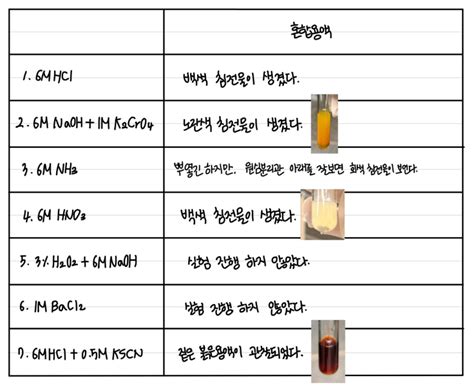 혼합용액
1. 6M HCl
백색 침전물이 생겼다.
2. 6M NaOH + 1M K2CrO4
노란색 침전물이 생겼다.
3. 6M NH3
뿌옇긴 하지만, 원심분리관 아래를 잘보면 회색 침전물이 보인다.
4. 6M HNO3
백색 침전물이 생겼다.
5. 3% H2O2 + 6M NaOH
실험 진행 하지 않았다.
6. 1M BaCl2
실험 진행 하지 않았다.
7. 6M HCl + 0.5M KSCN
짙은 붉은용액이 관찰되었다.